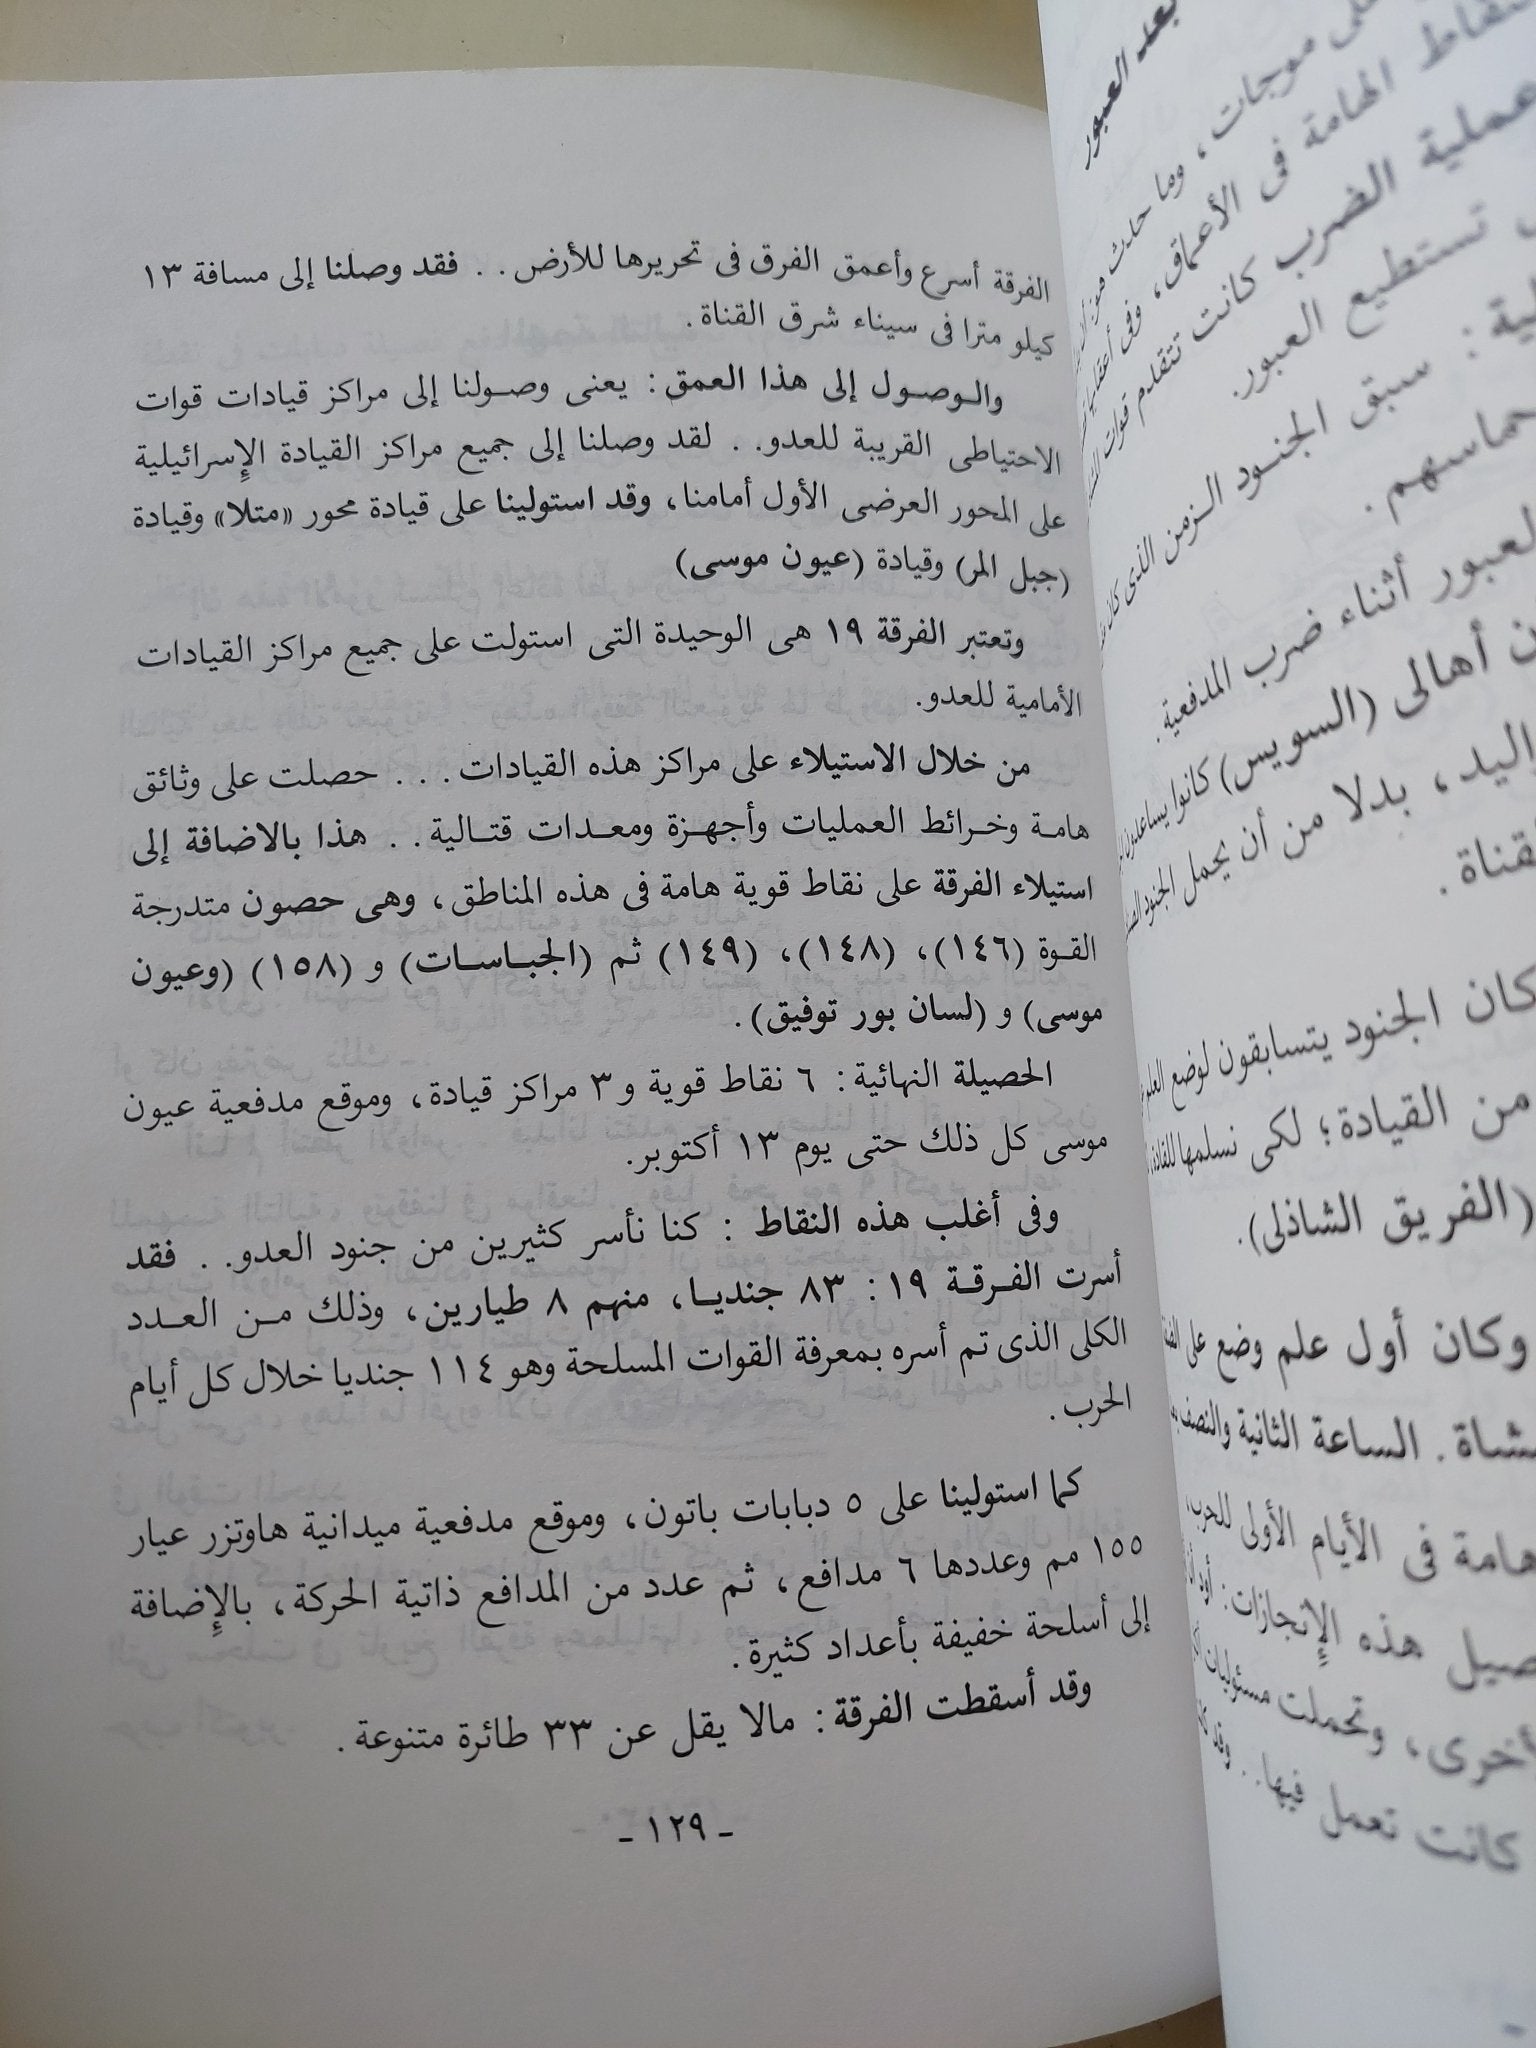 الفرقة أسرع وأعمق الفرق فى تحريرها للأرض . . فقد وصلنا إلى مسافة ١٣
كيلو مترا فى سيناء شرق القناة .
والـوصـول إلى هذا العمق : يعنى وصـولنا إلى مراكز قيادات قوات
الاحتياطى القريبة للعدو. . لقد وصلنا إلى جميع مراكز القيادة الإسرائيلية
على المحور العرضى الأول أمامنا، وقد استولينا على قيادة محور «متلا» وقيادة
(جبل المر) وقيادة (عيون موسى)
وتعتبر الفرقة ١٩ هى الوحيدة التى استولت على جميع مراكز القيادات
الأمامية للعدو.
من خلال الاستيلاء على مراكز هذه القيادات . . . حصلت على وثائق
هامـة وخـرائط العمليات وأجهـزة ومعـدات قتـالية . . هذا بالاضافة إلى
استيلاء الفرقة على نقاط قوية هامة فى هذه المناطق ، وهى حصون متدرجة
القـوة (١٤٦)، (١٤٨)، (١٤٩) ثم (الجبـاسـات) و (١٥٨) (وعيون
موسى) و (لسان بور توفيق) .
الحصيلة النهائية : ٦ نقاط قوية و٣ مراكز قيادة، وموقع مدفعية عيون
موسى كل ذلك حتى يوم ١٣ أكتوبر.
وفى أغلب هذه النقاط : كنا نأسر كثيرين من جنود العدو. . فقد
أسرت الفـرقـة ١٩ : ٨٣ جنديـا، منهم ٨ طيارين ، وذلك مـن العـدد
الكلى الذى تم أسره بمعرفة القوات المسلحة وهو ١١٤ جنديا خلال كل أيام
الحرب .
كما استولينا على ٥ دبابات باتون، وموقع مدفعية ميدانية هاوتزر عيار
١٥٥ مم وعددها ٦ مدافع ، ثم عدد من المدافع ذاتية الحركة ، بالإضافة
إلى أسلحة خفيفة بأعداد كثيرة .
وقد أسقطت الفرقة : مالا يقل عن ٣٣ طائرة متنوعة .
ـ ١٢٩ ـ
بعد العبور
موجات ، وما حدث
الهامة فى الأعماق، وفى
عملية الضرب كانت تتقدم قوات
تستطيع العبور.
سبق الجنـود الـزمن الذى كان
حماسهم .
العبور أثناء ضرب المدفعية .
أهالى (السويس) كانوا يساعدون
اليد، بدلا من أن يحمل الجنود
القناة .
كان الجنود يتسابقون لوضع العلم
من القيادة؛ لكى نسلمها للقادة
(الفريق الشاذلى).
وكان أول علم وضع على
الساعة الثانية والنصف
هامة فى الأيام الأولى للحرب
هذه الإنجازات : أود
أخرى، وتحملت مسئوليات
كانت تعمل فيها. . وقد